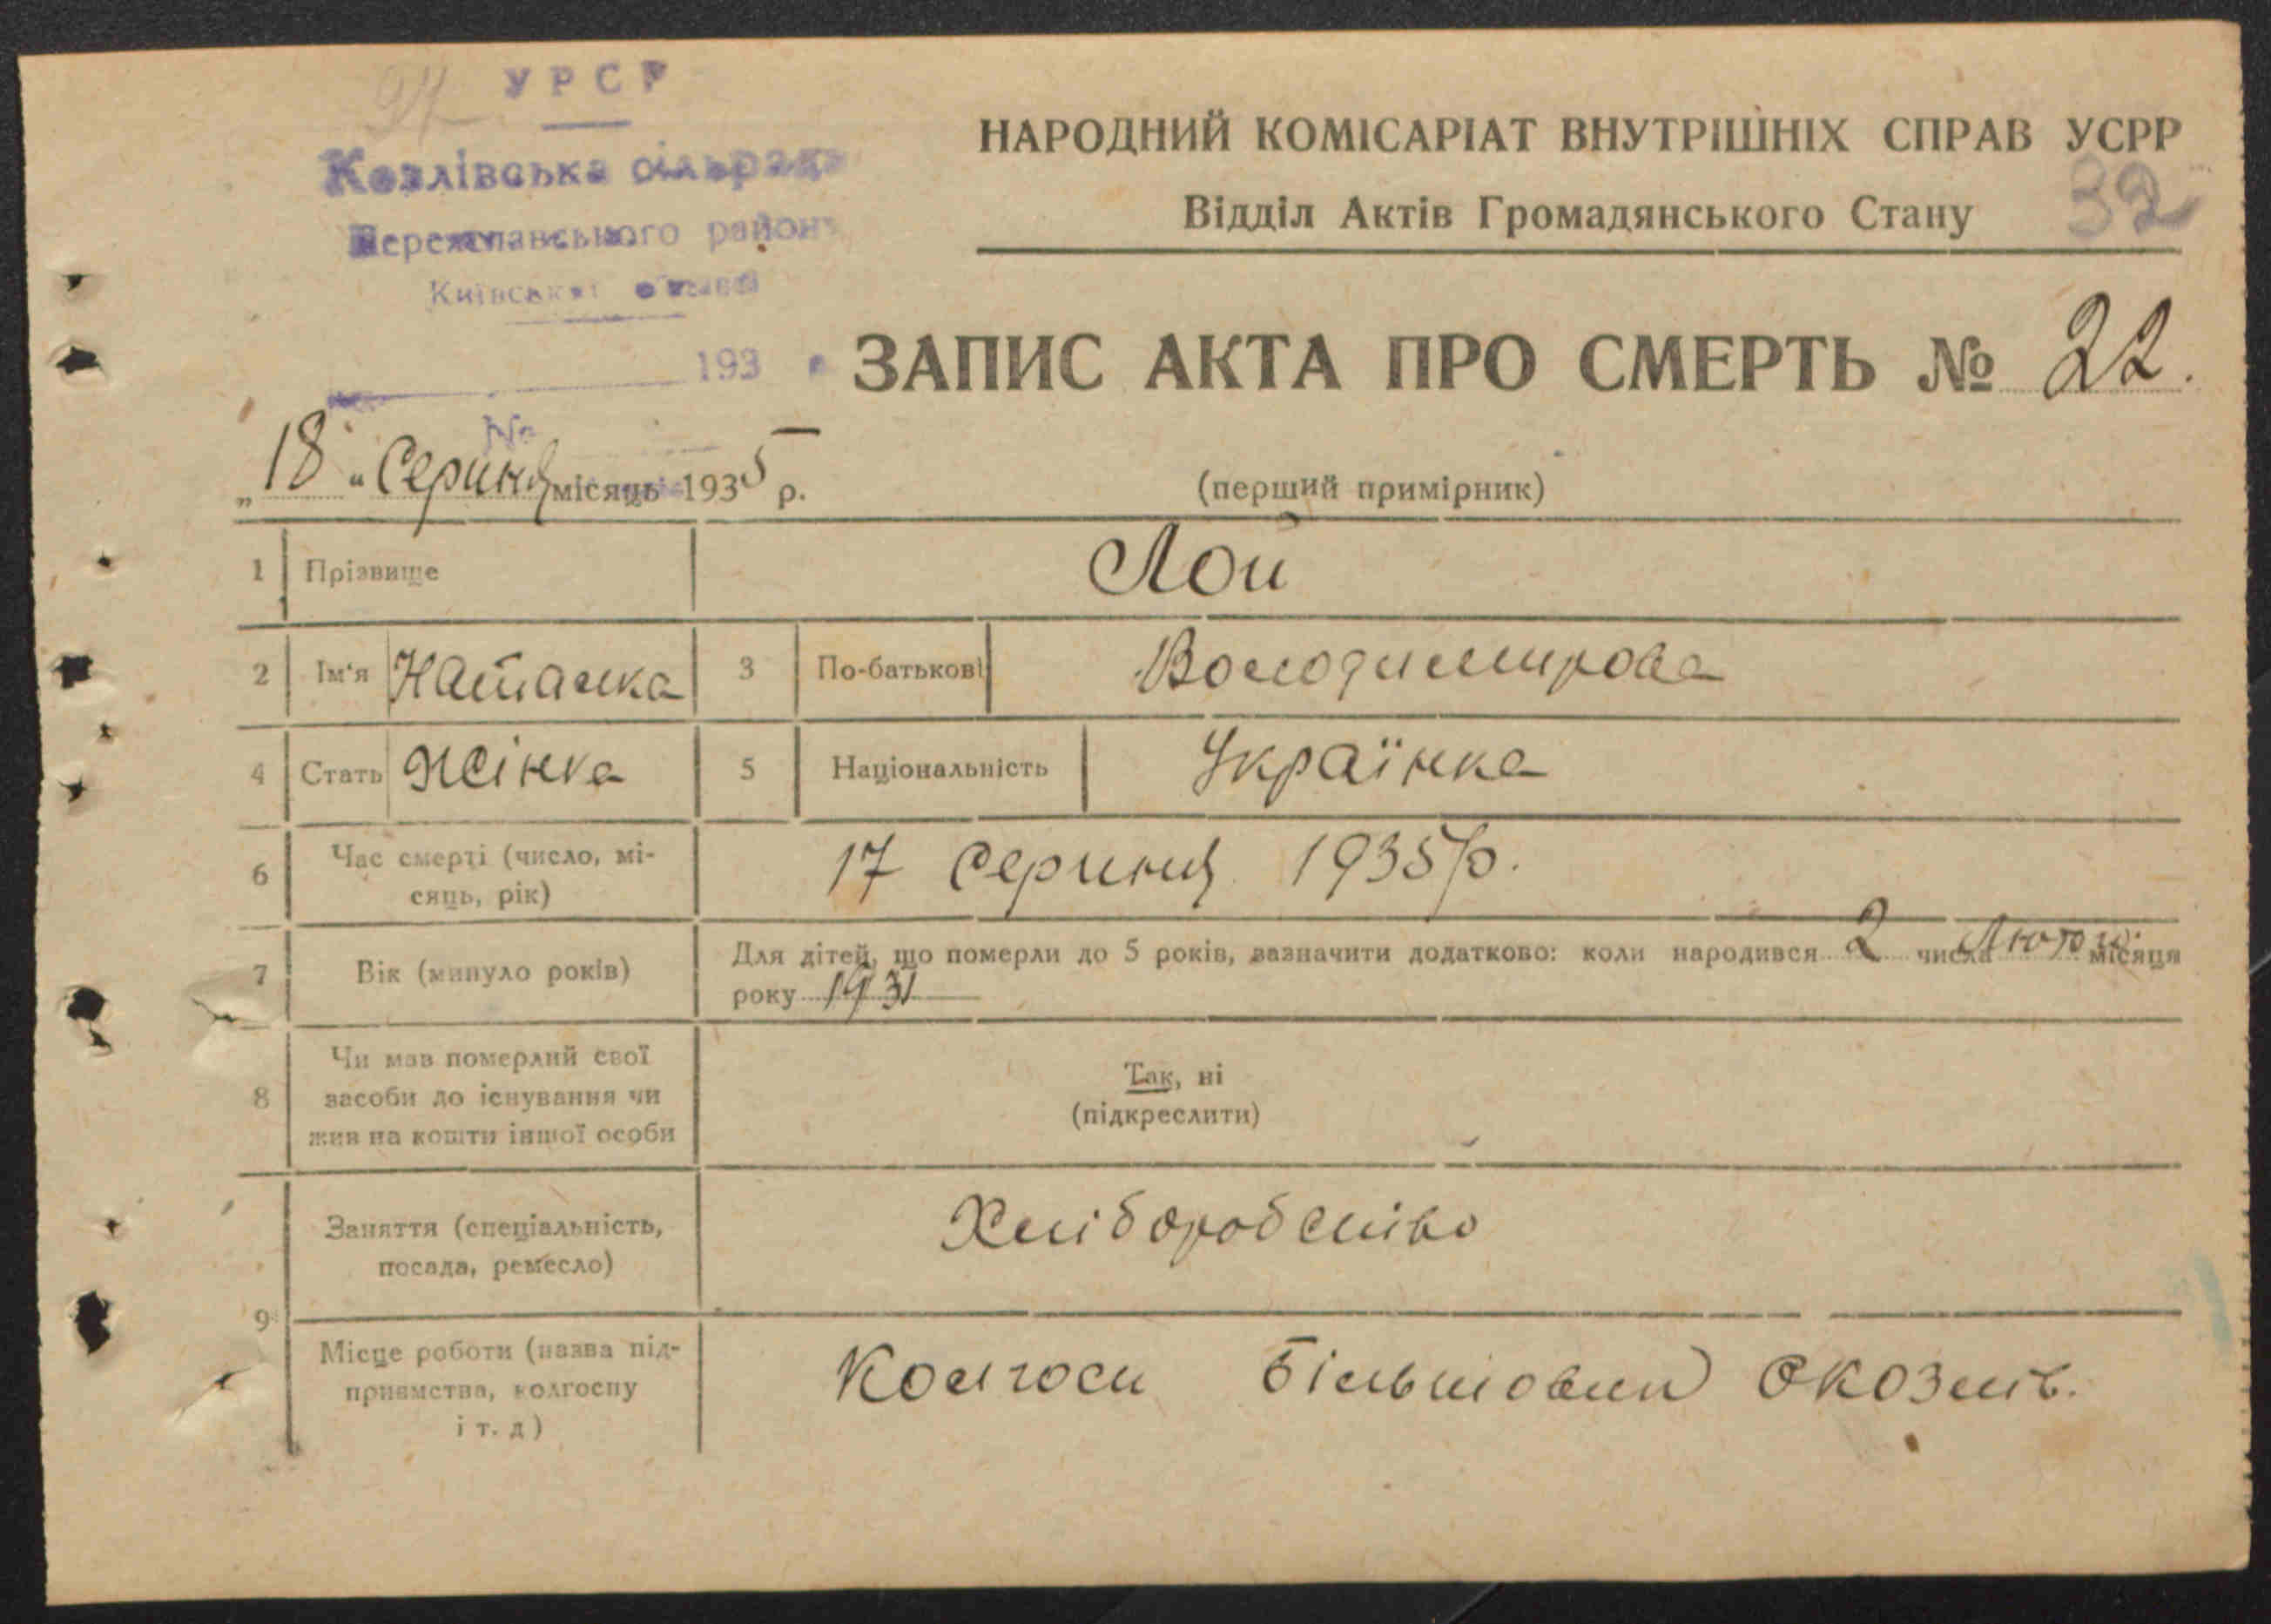 94
УРСР
Козлівська сільрада
Переяславського району
Київської області
193 р
№
НАРОДНИЙ КОМІСАРІАТ ВНУТРІШНІХ СПРАВ УСРР
Відділ Актів Громадянського Стану
32
ЗАПИС АКТА ПРО СМЕРТЬ № 22.
„18“ Серпня місяць 1935 р.
(перший примірник)
1 Прізвище Лой
2 Ім'я Наталка 3 По-батькові Володимирова
4 Стать Жінка 5 Національність Українка
6 Час смерті (число, мі-
сяць, рік)
17 Серпня 1935 р.
7 Вік (минуло років)
Для дітей, що померли до 5 років, зазначити додатково: коли народився 2 числа Лютого місяця
року 1931
8 Чи мав померлий свої
засоби до існування чи
жив на кошти іншої особи
Так, ні
(підкреслити)
9
Заняття (спеціальність,
посада, ремесло)
Хліборобство
Місце роботи (назва під-
приємства, колгоспу
і т. д)
Колгосп Більшовик